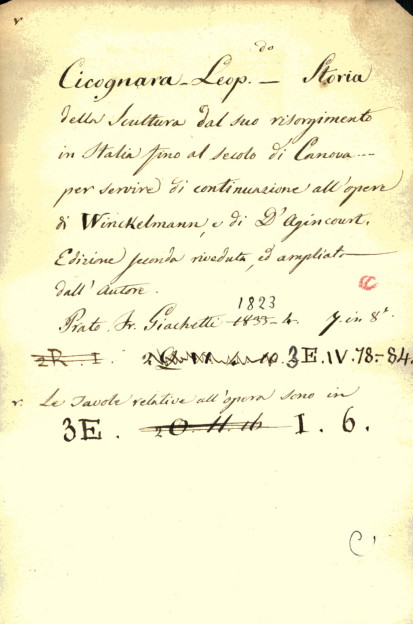 v
do
Cicognara - Leop. — Storia
della Scultura dal suo risorgimento
in Italia fino al secolo di Canova ....
per servire di continuazione all'opere
di Winckelmann, e di D'Agincourt.
Edizione seconda riveduta, ed ampliata
dall'autore.
1823
Prato. Fr. Giachetti 1833-4. 7. in 8°
2R. I. 3E.IV.78-84.
r. Le Tavole relative all'opera sono in
3E. 2O.11.16 I. 6.
C